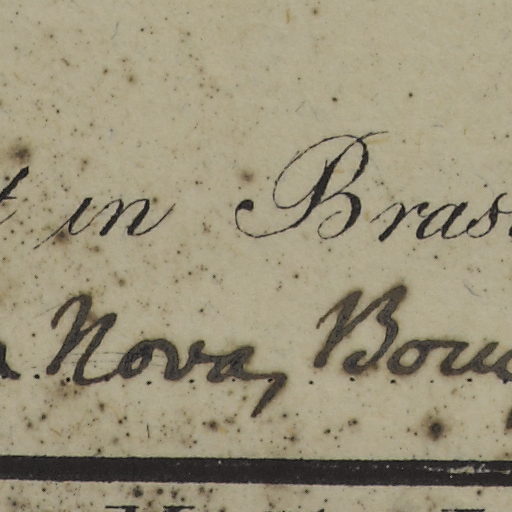 t in Bras
Nova, Boug